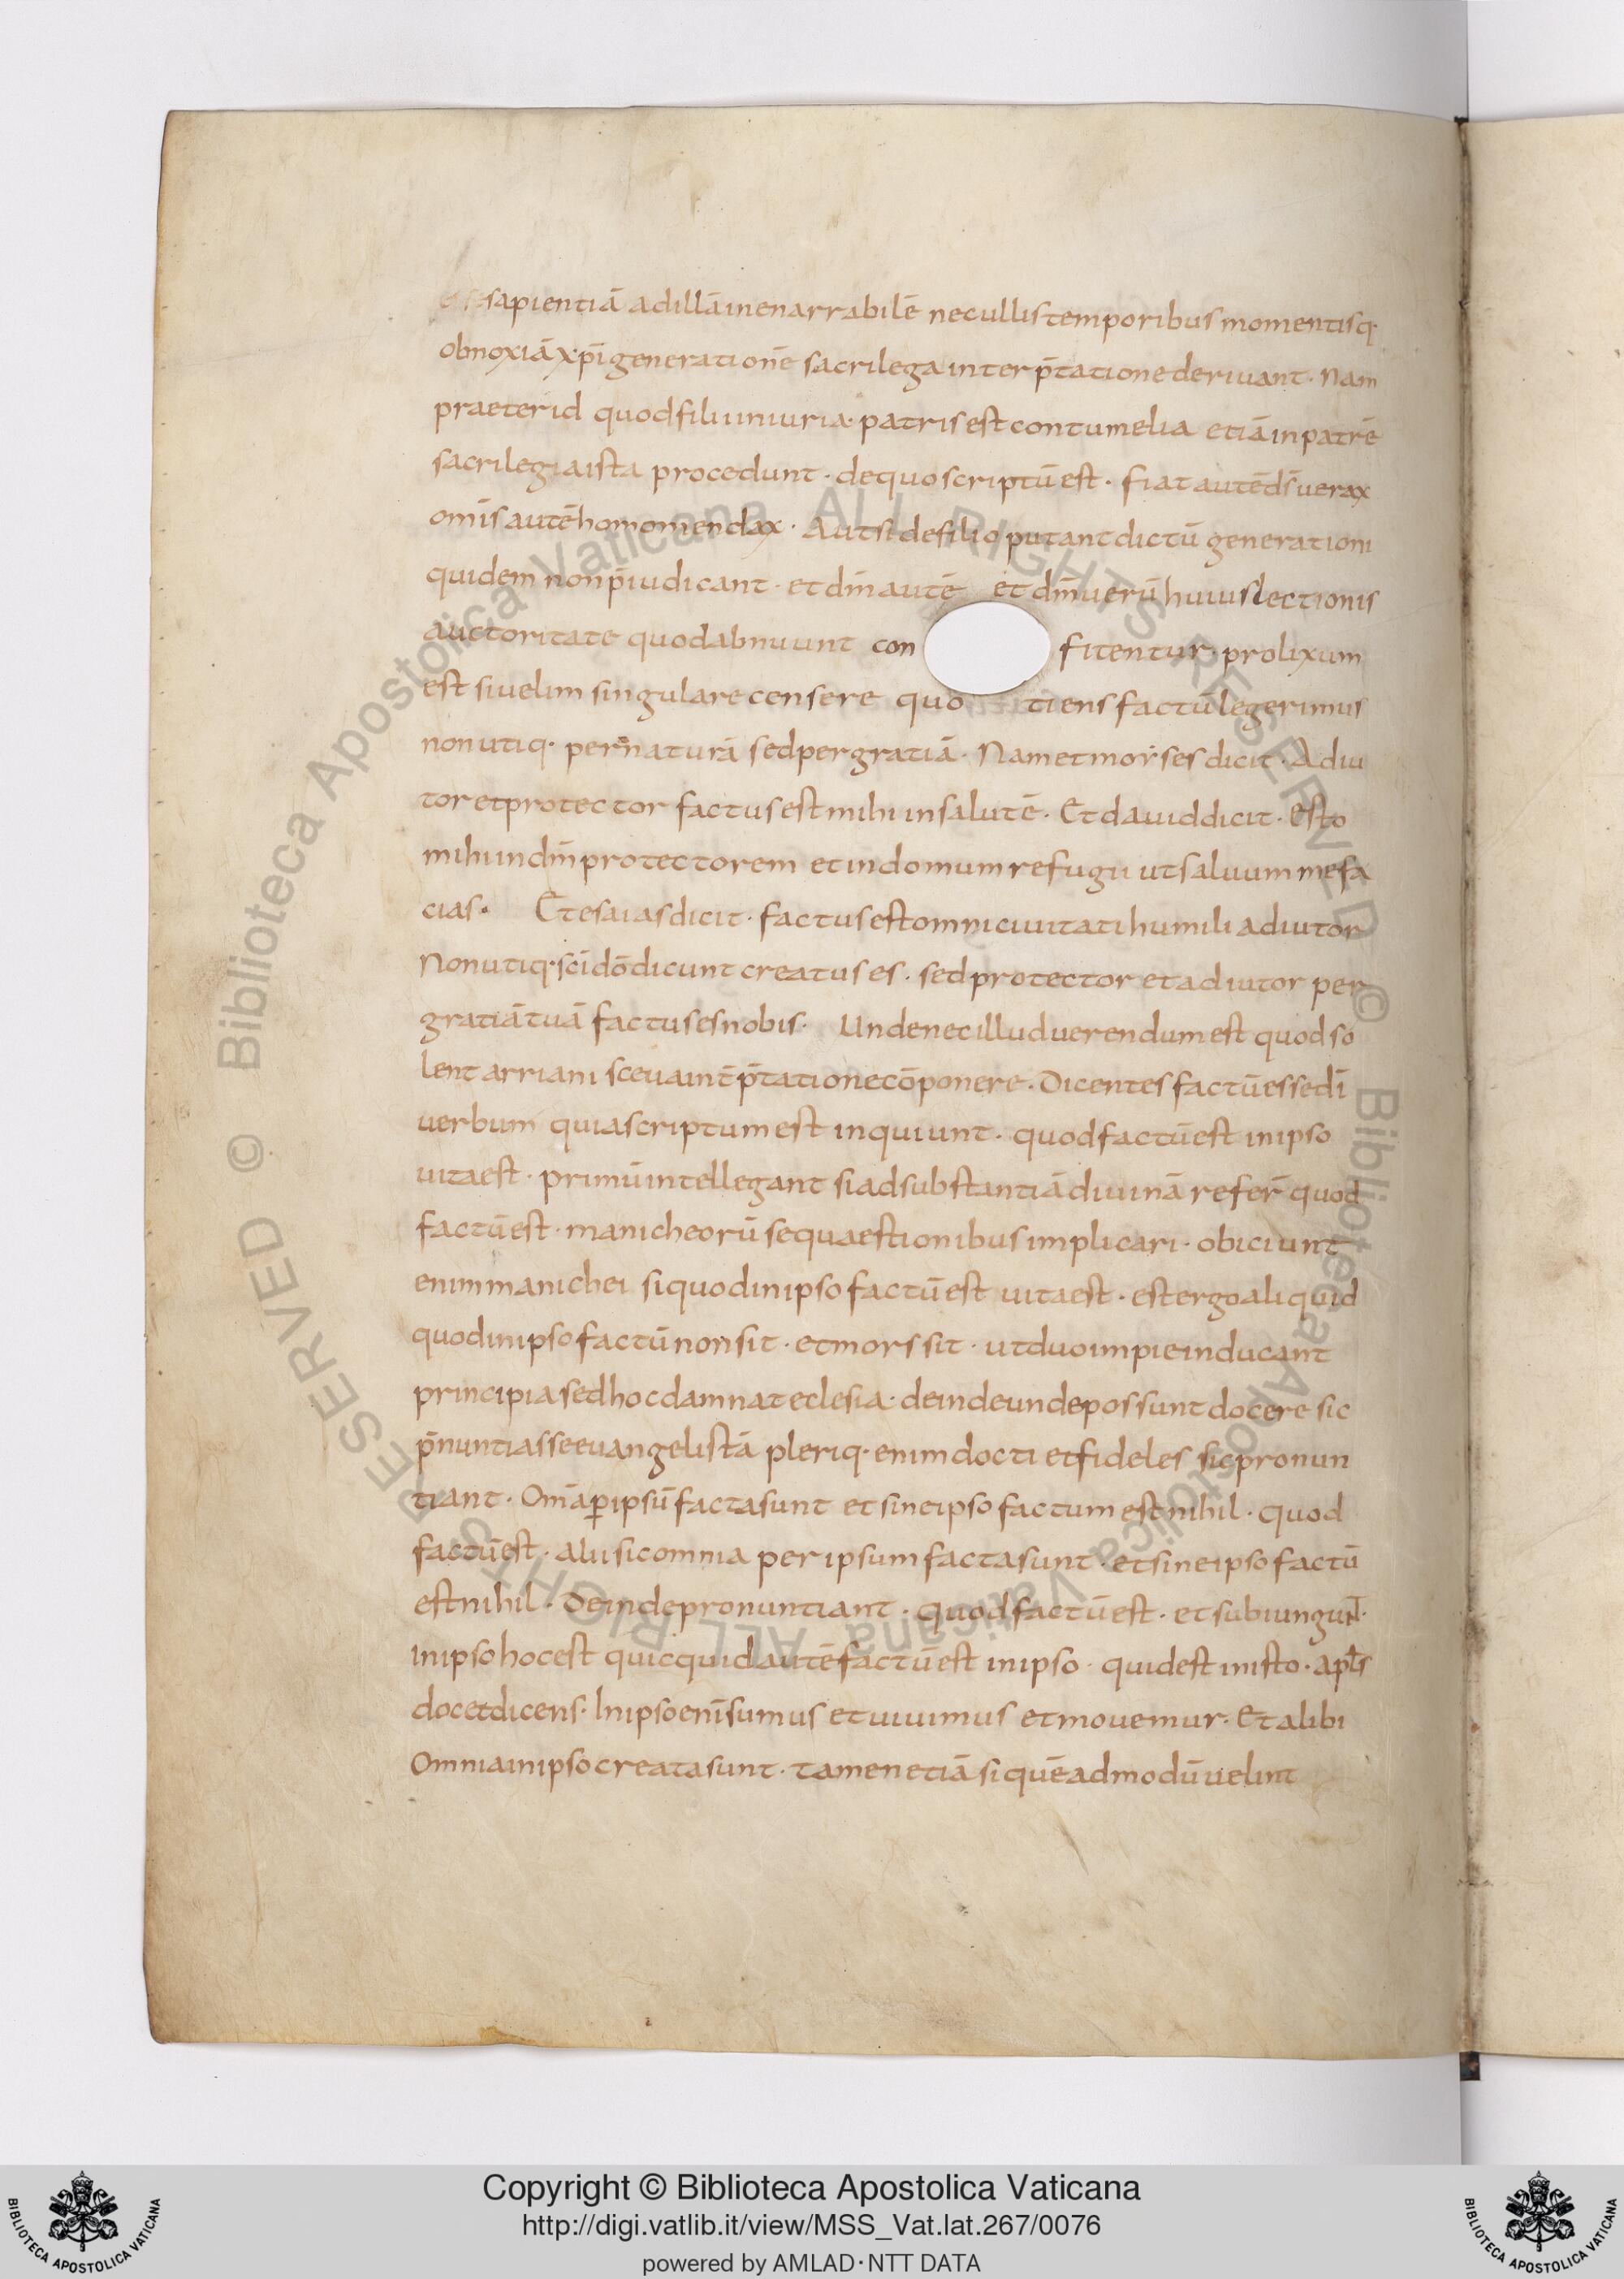 esse sapientiā ad illā inenarrabilē nec ullis temporibus momentisq·
obnoxiā xp̄i generationē sacrilega interp̄tatione deriuant · Nam
praeter id quod filii iniuria · patris est contumelia etiā in patrē
sacrilegia ista procedunt · de quo scriptū est · fiat autē d̄s uerax
omīs autē homo mendax · Aut si de filio putant dictū generationi
quidem non p̄iudicant · et dm̄ autē et dm̄ uerū huius lectionis
auctoritate quod abnuunt con fitentur · prolixum
est si uelim singulare censere quo tiens factū legerimus
non utiq· per naturā sed per gratiā · Nam et moẏses dicit · Adiu
tor et protector factus est mihi in salutē · Et dauid dicit · Esto
mihi in dm̄ protectorem et in domum refugii ut saluum me fa
cias · Et esaias dicit · factus est omni ciuitati humili adiutor
Non utiq· sc̄i dō dicunt creatus es · sed protector et adiutor per
gratiā tuā factus es nobis · Unde nec illud uerendum est quod so
lent arriani sceua int̄p̄tatione cōponere · Dicentes factū esse dī
uerbum quia scriptum est inquiunt · quod factū est in ipso
uita est · primū intellegant si ad substantiā diuinā refer̄ quod
factū est · manicheorū se quaestionibus implicari · obiciunt
enim manichei si quod in ipso factū est uita est · est ergo aliquid
quod in ipso factū non sit · et mors sit · ut duo impie inducant
principia sed hoc damnat eclesia · deinde unde possunt docere sic
p̄nuntiasse euangelistā pleriq· enim docti et fideles sic pronun
tiant · Om̄a ꝑ ipsū facta sunt et sine ipso factum est nihil · quod
factū est · alii sic omnia per ipsum facta sunt · et sine ipso factū
est nihil · Deinde pronuntiant · quod factū est · et subiungunt̄ ·
in ipso hoc est quicquid autē factū est in ipso · quid est in isto · apl̄s
docet dicens · In ipso enī sumus et uiuimus et mouemur · Et alibi
Omnia in ipso creata sunt · tamen etiā si quēadmodū uelint
© Biblioteca Apostolica Vaticana ALL RIGHTS RESERVED © Biblioteca Apostolica Vaticana ALL RIGHTS RESERVED
Copyright © Biblioteca Apostolica Vaticana
http://digi.vatlib.it/view/MSS_Vat.lat.267/0076
powered by AMLAD·NTT DATA
BIBLIOTECA APOSTOLICA VATICANA
BIBLIOTECA APOSTOLICA VATICANA